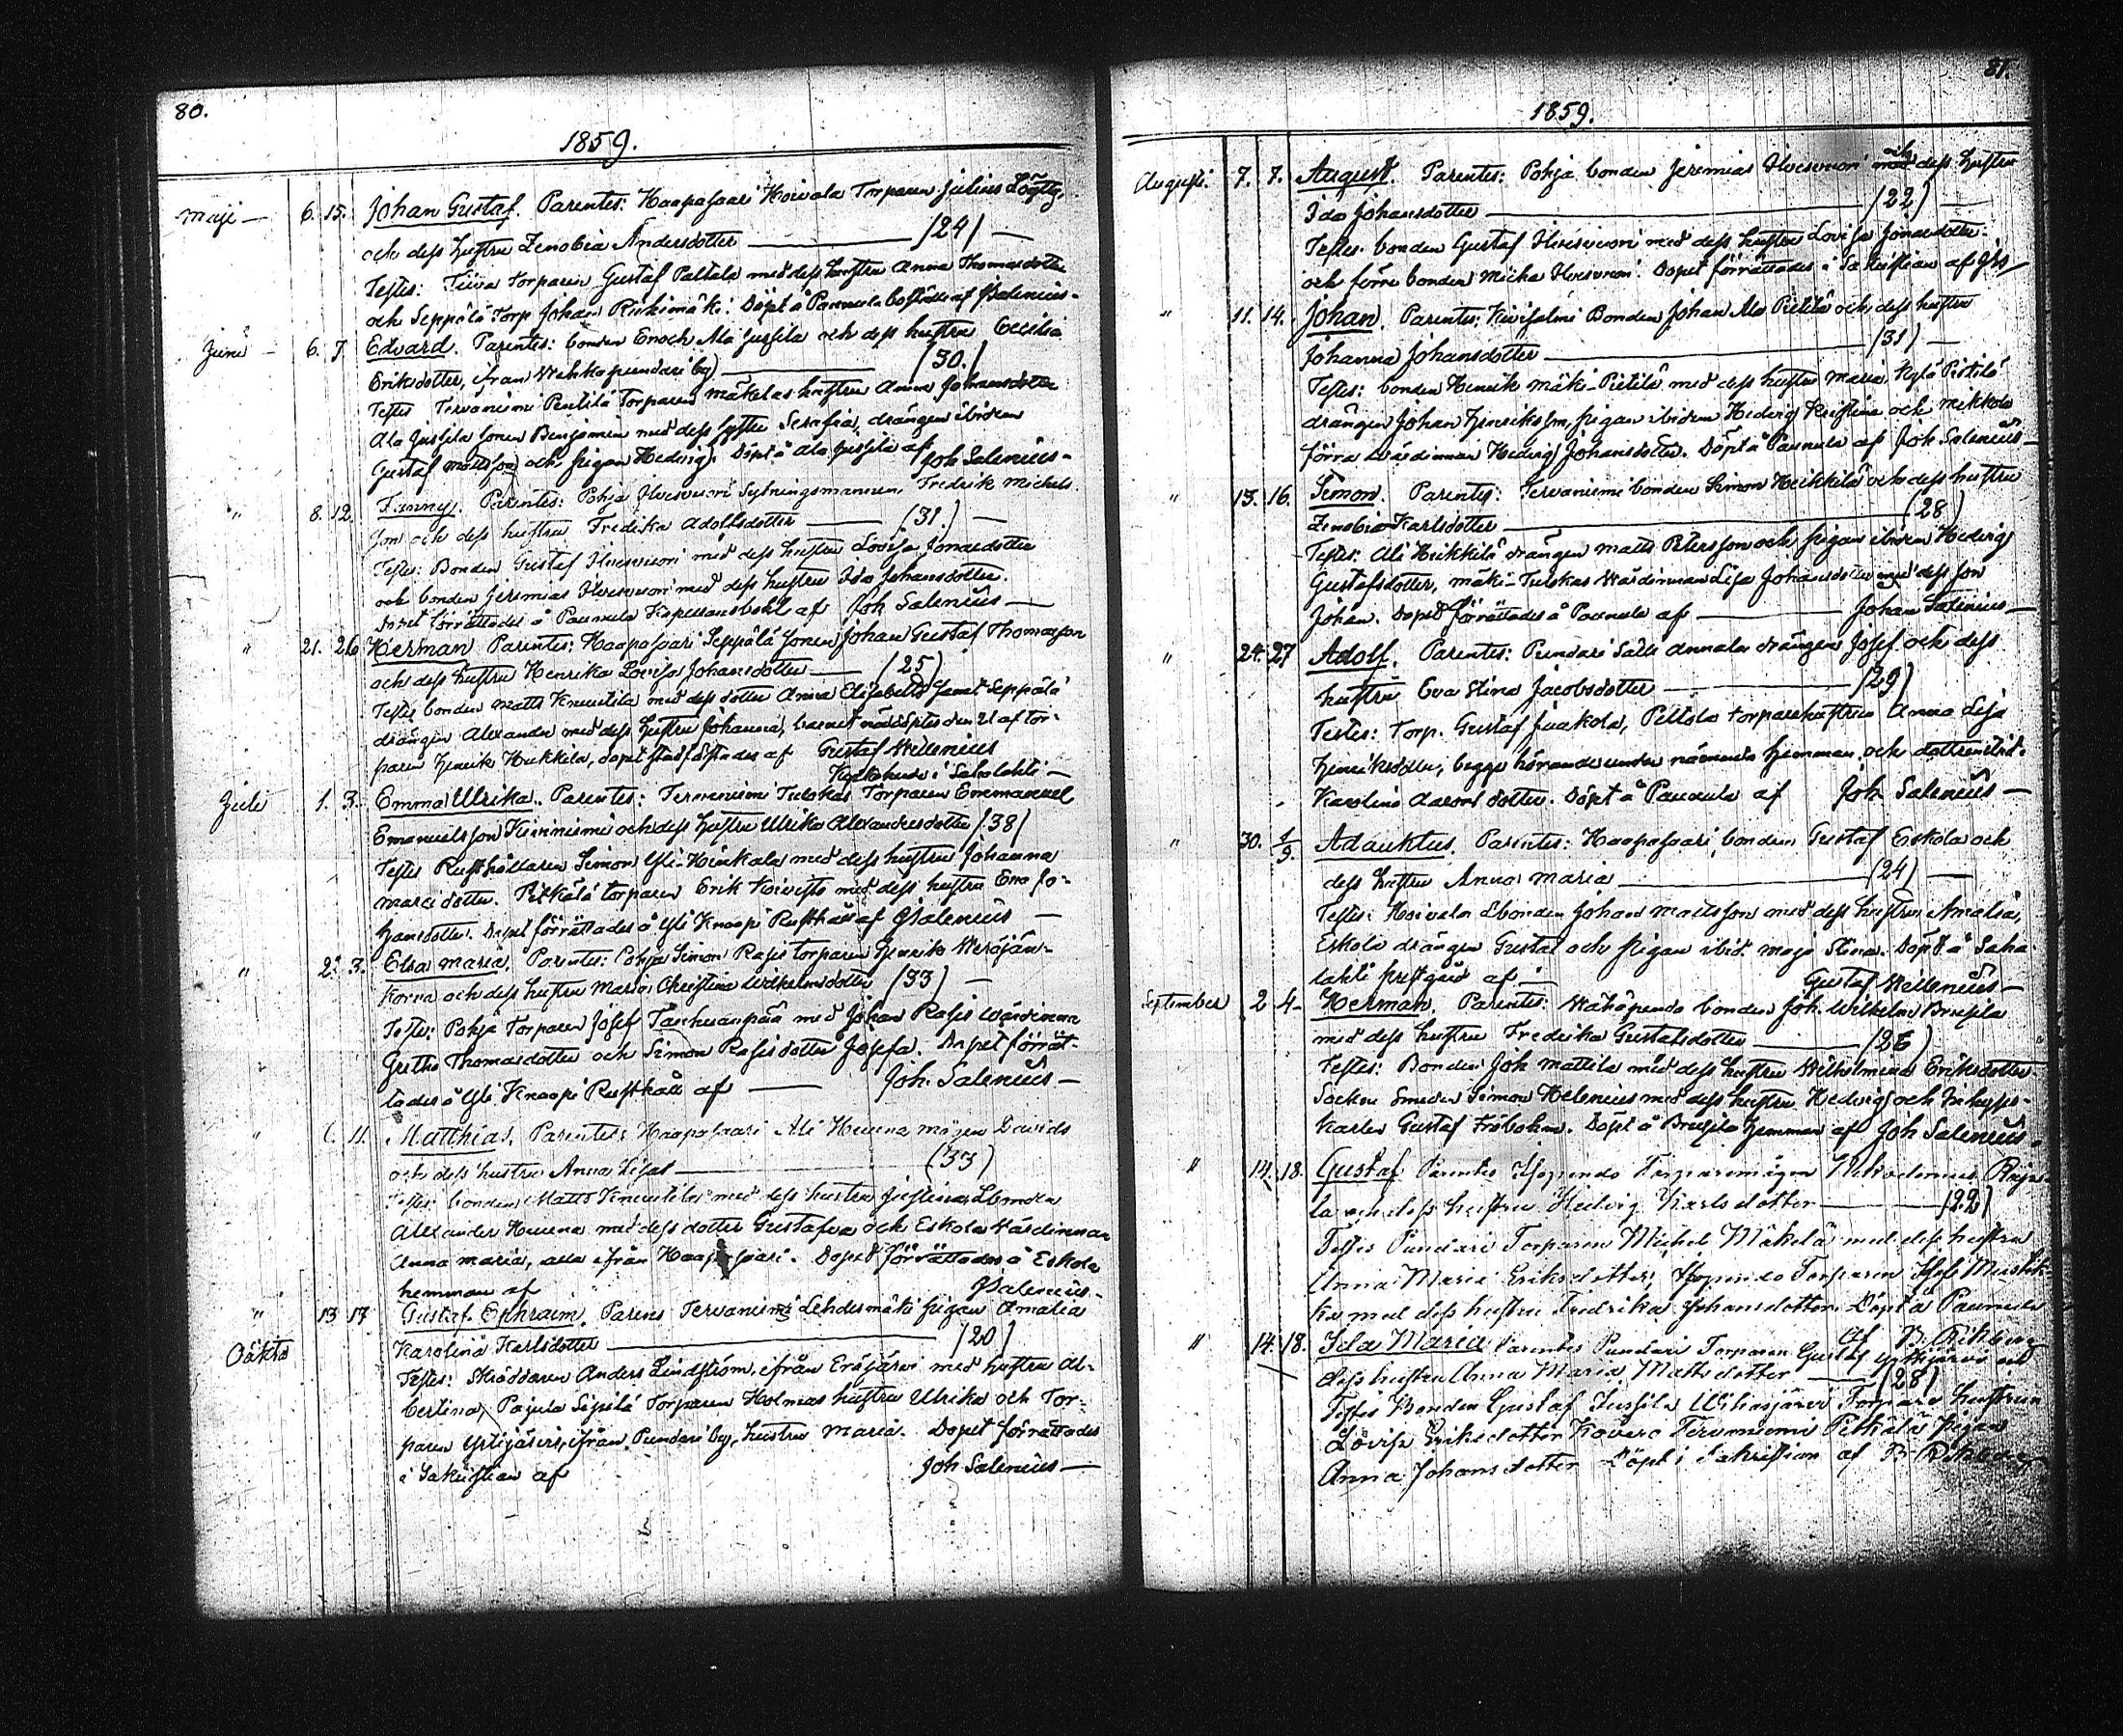 80.
1859.
Maji — 6. 15. Johan Gustaf. Parentes: Haapasaari Koivala Torparen Julius Löytty,
och dess hustru Zenobia Andersdotter — /24/ —
Testes: Torparen Gustaf Paltala med dess hustru Anna Thomasdotter
och Seppälä Torp. Johan Riihimäki. Döpt å Paunula boställe af JSalenius-
Juni — 6. 7 Edvard. Parentes: bonden Enoch Ala Jussila och dess hustru Cecilia
Eriksdotter, (från Wehkapundari by) — (30.)
Testes Tervaniemi Penttilä Torparen Mäkeläs hustru Anna Johansdotter
Ala Jussila sonen Benjamin med dess syster Serafia, drängen ibidem
Gustaf Mattsson och pigan Hedvig. Döpt å Ala Jussila af Joh Salenius-
" 8. 12. Fanny. Parentes: Pohja Ilvesvuori Sytningsmannen Fredrik Michels
son och dess hustru Fredika Adolfsdotter — (31.) —
Testes: Bonden Gustaf Ilvesvuori med dess hustru Lovisa Jonaedotter
och bonden Jeremias Ilvesvuori med dess hustru Ida Johansdotter.
Dopet förrättades å Paunula Kapellansbohl af Joh Salenius —
" 21. 26 Herman Parentes: Haapasaari Seppälä sonen Johan Gustaf Thomasson
och dess hustru Henrika Lovisa Johansdotter — (25)
Testes bonden Matts Knuutila med dess dotter Anna Elisabeth samt Seppälä
drängen Alexander med dess hustru Johanna, barnet nöddöptes den 21 af tor-
paren Henrik Heikkilä, dopet stadfästades af Gustaf Willenius
Kyrkoherde i Sahalahti —
Juli 1. 3. Emma Ulrika. Parentes: Tervaniemi Tulokas Torparen Emmanuel
Emanuelsson Kiviniemi och dess hustru Ulrika Alexandersdotter /38/
Testes Rusthållaren Simon Yli-Hinkala med dess hustru Johanna
Marcidotter. Pitkälä torparen Erik Koivisto med dess hustru Eva Jo-
hansdotter. Dopet förrättades å Yli Knaapi Rusthåll af JSalenius —
" 2. 3. Elsa Maria. Parentes: Pohja Simon Rasis torparen Henrik Weräjän-
korva och dess hustru Maria Christina Wilhelmsdotter /33/ —
Testes: Pohja Torparen Josef med Johan Rasis wärdinna
Gretha Thomasdotter och Simon Rasis dotter Josefa. Dopet förrät-
tades å Yli Knaapi Rusthåll af — Joh. Salenius —
" 6. 11. Matthias, Parentes: Haapasaari Ali Huuna mågen Davids
och dess hustru Anna Lisas — (33)
Testes: bonden Matts Knuutila med dess hustru Justina, bonden
Alexander Huuna med dess dotter Gustafva och Eskola Wärdinnan
Anna Maria, alla ifrån Haapasaari. Dopet förrättades å Eskola
hemman af JSalenius-
" 13 17 Gustaf Ephraim. Parens Tervaniemi Lehdesmäki pigan Amalia
Oäkta Karolina Karlsdotter — /20/
Testes: Skräddaren Anders Lindström, ifrån Eräjärvi med hustru Al-
bertina, Pajula Sipilä Torparen Holmas hustru Ulrika och Tor-
paren Yrtijärvi, ifrån Pundari by, hustru Maria. Dopet förrättades
i Sakristian af Joh Salenius —
81.
1859.
Augusti. 7. 7. August. Parentes: Pohja bonden Jeremias Ilvesvuori och dess hustru
Ida Johansdotter — /22/ —
Testes. bonden Gustaf Ilvesvuori med dess hustru Lovisa Jonaedotter
och förre bonden Micha Ilvesvuori. Dopet förrättades i Sakristian af JSs/
" 11. 14. Johan. Parentes: Kivisalmi Bonden Johan Ala Pietilä och dess hustru
Johanna Johansdotter — /31/ —
Testes: bonden Henrik Mäki-Pietilä med dess hustru Maria, Kylä Pietilä
drängen Johan Henriksson, pigan ibidem Hedvig Kristina och Mikkola
förra wärdinnan Hedvig Johansdotter. Döpt å Paunula af Joh Salenius —
" 13. 16. Simon. Parentes: Tervaniemi bonden Simon Heikkilä och dess hustru
Zenobia Karlsdotter — (28)
Testes: Ali Heikkilä drängen Matts Petersson och pigan ibidem Hedvig
Gustafsdotter, Mäki-Tulokas Wärdinnan Lisa Johansdotter med dess son
Johan. Dopet förrättades å Paunula af — Johan Salenius —
" 24. 27 Adolf. Parentes: Pundari Salli Annala drängen Josef och dess
hustru Eva Stina Jacobsdotter — /29/
Testes: Torp. Gustaf Juakola, Peltola torparehustrun Anna Lisa
Henriksdotter, begge hörande under nämnda hemman och dottren ibid.
Karolina Aaronsdotter. Döpt å Paunula af Joh. Salenius —
" 30. 4/9. Adauktus. Parentes: Haapasaari, bonden Gustaf Eskola och
dess hustru Anna Maria — (24) —
Testes: Koivala bonden Johan Mattsson med dess hustru Amalia,
Eskola drängen Gustaf och pigan ibid. Maja Stina. Döpt å Saha
lahti prestgård af Gustaf Willenius —
September 2 4- Herman. Parentes: Wähäpundo bonden Joh. Wilhelm Bruusila
med dess hustru Fredrika Gustafsdotter — /26/
Testes: Bonden Joh Mattila med dess hustru Wilhelmina Eriksdotter
Socken Smeden Simon Helenius med dess hustru Hedvig och Inhyses-
karlen Gustaf Fröbohm. Döpt å Bruusila hemman af Joh Salenius-
" 14. 18. Gustaf Parentes Isopundo Torparemågen Nikodemus
la och dess hustru Hedvig Karlsdotter — /22/
Testes Pundari Torparen Michel Mäkelä med dess hustru
Anna Maria Eriksdotter, Isopundo Torparen
ka med dess hustru Fredrika Johansdotter. Döpt å Paunula
af B.
" 14. 18. Ida Maria Parentes Pundari Torparen Gustaf Yrtijärvi och
dess hustru Anna Maria Mattsdotter — /28/
Testes Bonden Gustaf Jussila Wihasjärvi Torpare hustrun
Lovisa Eriksdotter Tervaniemi Pitkälä pigan
Anna Johansdotter Döpt i Sakristian af B